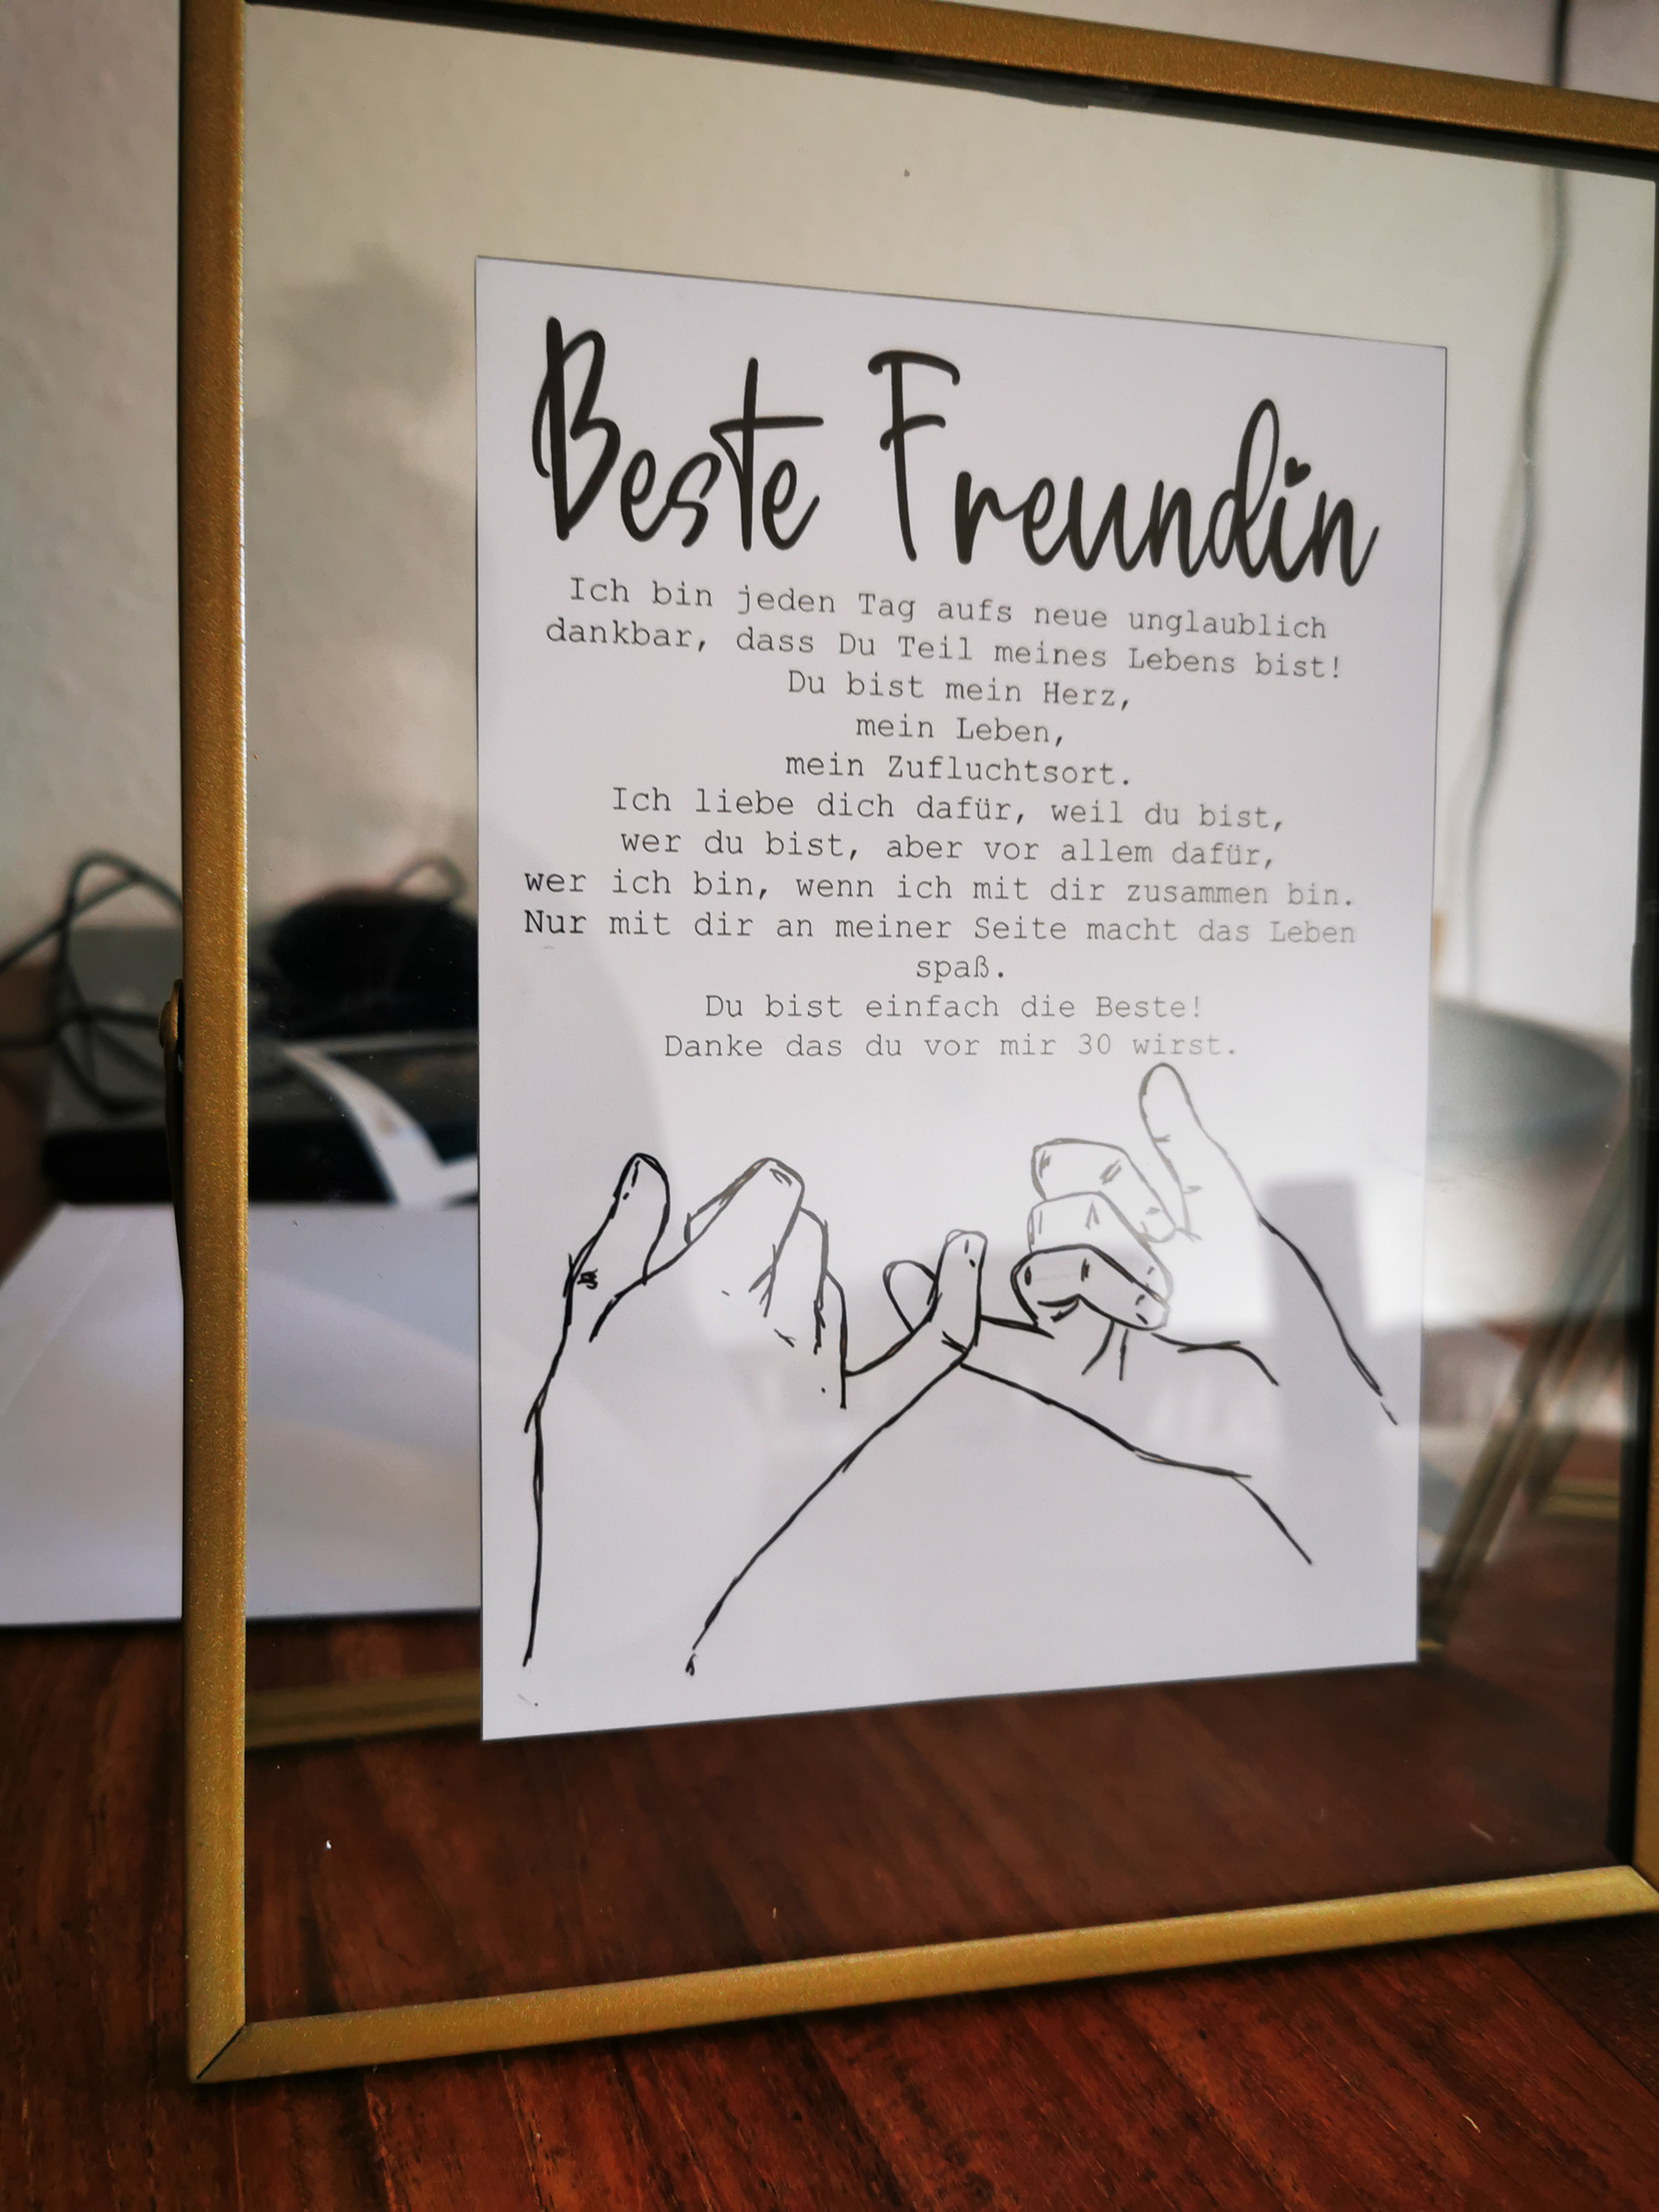 Beste Freundin
Ich bin jeden Tag aufs neue unglaublich
dankbar, dass Du Teil meines Lebens bist!
Du bist mein Herz,
mein Leben,
mein Zufluchtsort.
Ich liebe dich dafür, weil du bist,
wer du bist, aber vor allem dafür,
wer ich bin, wenn ich mit dir zusammen bin.
Nur mit dir an meiner Seite macht das Leben
spaß.
Du bist einfach die Beste!
Danke das du vor mir 30 wirst.